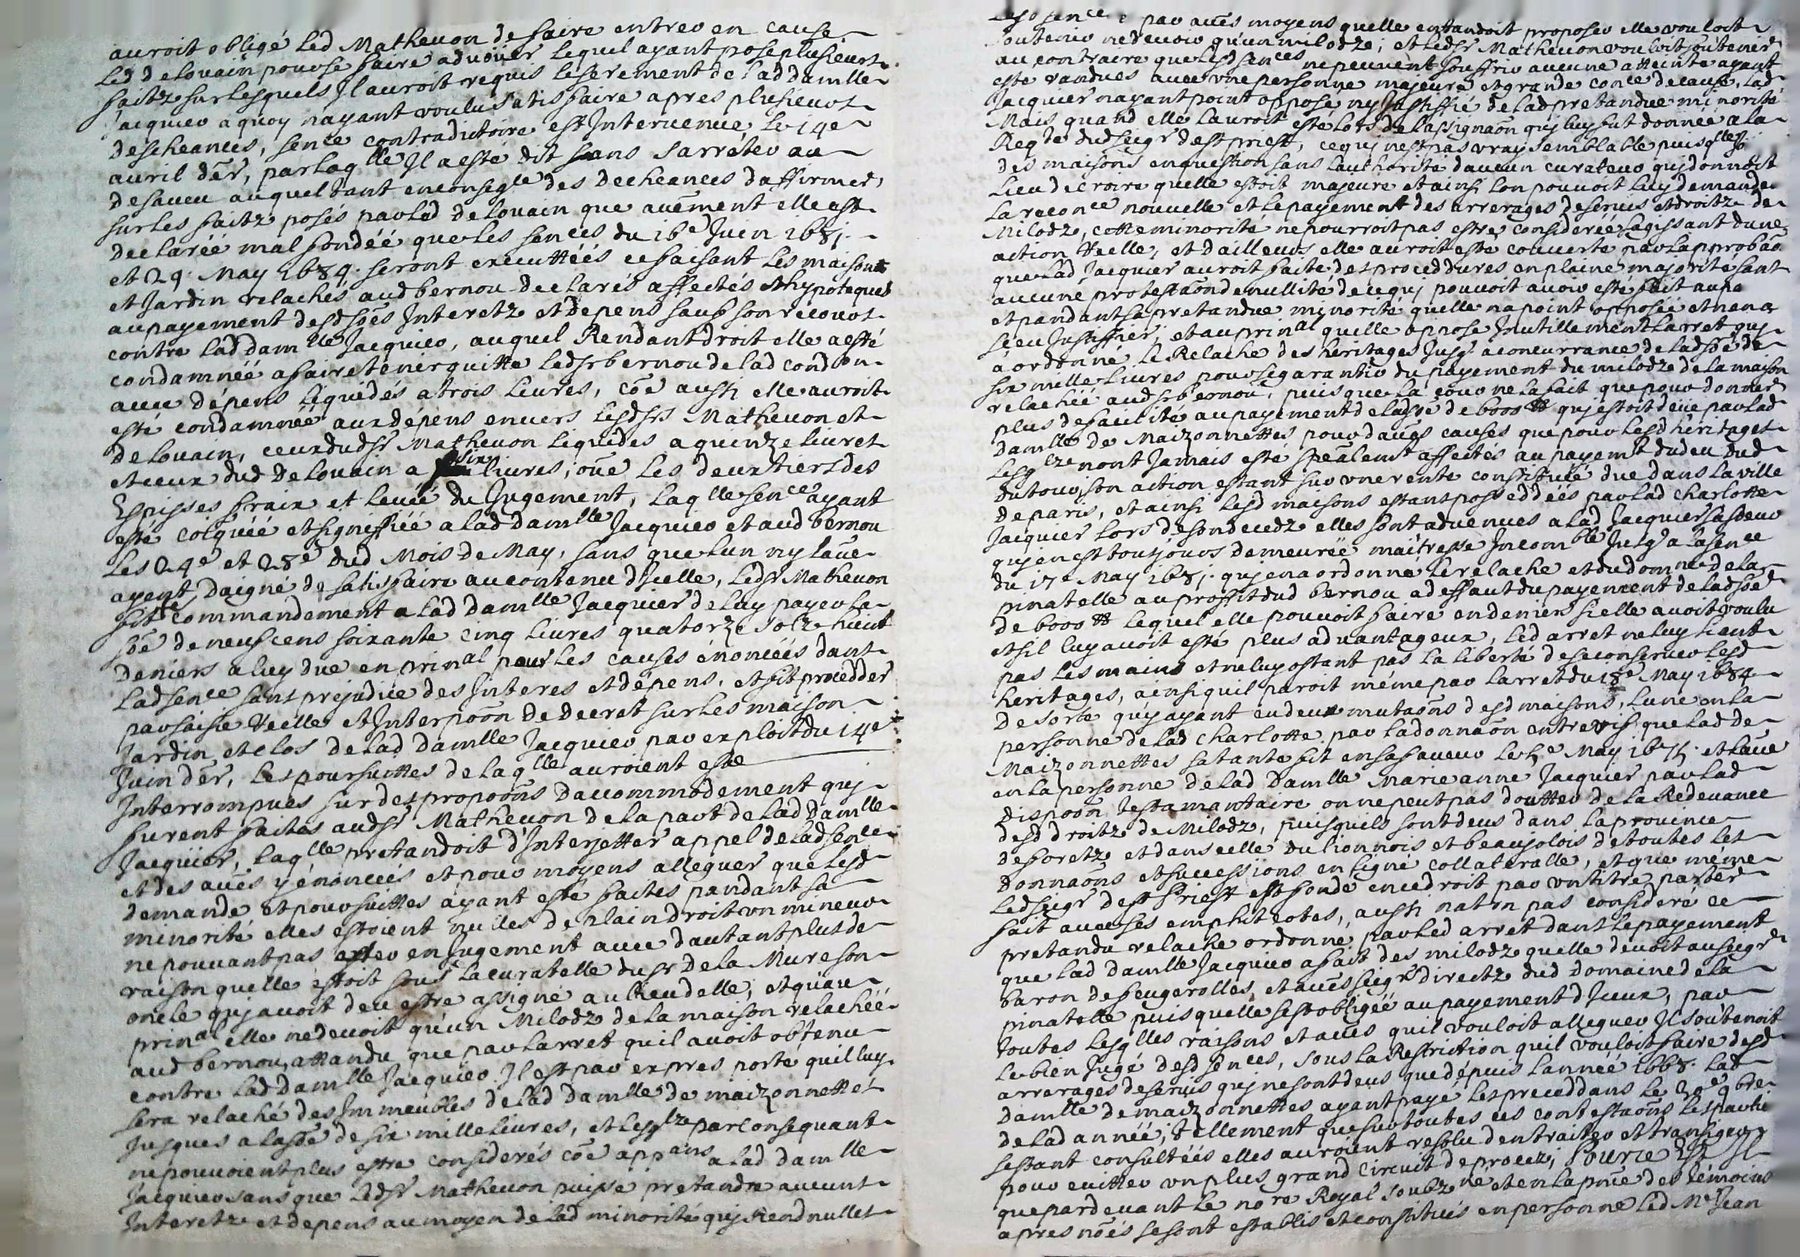 auroit obligé led Mathevon de faire entrer en cause
led delouain pour se faire advoüer lequel ayant posé plusieurs
faitz sur lesquels Il auroit requis le serement de lad damlle
Jacquier a quoy n'ayant voulu satisfaire apres plusieurs
descheances, sence contradictoire est Intervenue le 14e
auril der, par laqlle Il a esté dit sans s'arréter au
desaveu auquel tant en conseqle des decheances d'affirmer,
sur les faitz posés par led delouain que autrement elle est
declarée mal fondée que les sences du 16e Juin 1681.
et 29. May 1684. seront executtées ce faisant les maisons
et Jardin relachés aud bernou declarés affectés et hypotequés
au payement desd soes Interetz et depens sauf son recours
contre lad damlle Jacquier, auquel Rendant droit elle a esté
condamnée a faire tenir quitte led sr bernou de lad condon
avec depens liquidés a trois livres, coe aussi elle auroit
esté condamnée aux dépens envers lesd srs Mathevon et
delouain, ceux dud sr Mathevon liquidés a quinze livres
et ceux dud Delouain a six livres, outre les deux tiers des
Espisses fraix et levée du Jugement, laqlle sence ayant
esté colquée et signeffiée a lad damlle Jacquier et aud bernou
les 24e et 28e dud mois de May, sans que l'un ny l'autre
ayent daigné de satisfaire au contenu d'Icelle, led sr Mathevon
fit commandement a lad damlle Jacquier de luy payer la
soe de neuf cens soixante cinq livres quatorze solz huit
deniers a luy due en prinal pour les causes énoncées dans
lad sence sans prejudice des Interes et dépens, et fit procedder
par saisie réelle et Interpoon de decret sur les maison
Jardin et clos de lad damlle Jacquier par exploit du 14e
Juin der, les poursuittes de laqlle auroient esté
Interrompues sur des propoons d'accommodement quy
furent faites aud sr Mathevon de la part de lad damlle
Jacquier, laqlle pretandoit d'Interjetter appel de lad sence
et des autres y énoncées et pour moyens alleguer que lesd
demande et poursuittes ayant esté faites pandant sa
minorité elles estoient nulles de plain droit un mineur
ne pouvant pas ester en Jugement avec d'autant plus de
raison quelle estoit sous la curatelle du sr de la Mure son
oncle quj auroit deu estre assigné au lieu delle, et quau
prinal elle ne devoit qu'un Milodz de la maison relachée
aud bernou, attandu que par l'arret quil auoit obtenu
contre lad damlle Jacquier Il est par expres porté quil luy
sera relaché des Immeubles de lad damlle de maizonnettes
Jusques a la soe de six mille livres, et lesqlz par consequant
ne pouvoient plus estre considerés coe appans a lad damlle
Jacquier sans que led sr Mathevon puisse pretandre aucuns
Interetz et depens au moyen de lad minorité quj Rend nulles
lesd sences, par autres moyens quelle entandoit proposer elle vouloit
soutenir ne devoir qu'un milodz; et led sr Mathevon vouloit soutenir
au contraire que lesd sences ne peuvent souffrir aucune atteinte ayant
esté randues avec une personne majeure et grande conce de cause, lad
Jacquier n'ayant point opposé ny Justiffié de lad pretandue minorité
Mais quand elle l'auroit esté lors de l'assignaon quj luy fut donnée a la
Reqte dud seigr de st priest, ce quj n'est pas vray semblable puisqlle
des maisons en question sans l'authorité d'aucun curateur quj donnoit
lieu de croire quelle estoit majeure et ainsi l'on pouvoit luy demander
la reconce nouvelle et le payement des arrerages de servis et droitz de
Milodz, cette minorité ne pourroit pas estre considerée s'agissant d'une
action réelle, et d'ailleurs elle auroit esté couverte par l'approbaon
que lad Jacquier auroit faite des proceddures en plaine majorité sans
aucune protestaon de nullité de ce quj pouvoit avoir esté fait avant
et pandant sa pretandue minorité quelle na point opposée et n'en a
sceu Justiffier, et au prinal quelle oppose Inutillement l'arret quj
a ordonné le Relache des heritages Jusqs a concurrance de lad soe de
six mille livres pour se garantir du payement du milodz de la maison
relachée aud sr bernou, puis que la cour ne la fait que pour donner
plus de facilité au payement de lad soe de 6000 ₶ quj estoit deüe par lad
damlle de Maizonnettes pour dautres causes que pour lesd heritages
lesqlz n'ont Jamais esté specialemt affectés au payemt du deu dud
dutour, son action estant sur une rente constituée due dans la ville
de paris, et ainsi lesd maisons estant posseddées par lad charlotte
Jacquier lors de son decedz elles sont advenues a lad Jacquier sa soeur
quj en est tousjours demeurée maitresse Incomble Jusqs a la sence
du 17e May 1681. quj en a ordonné le relache et du domne de la
pinatelle au proffit dud bernou a deffaut du payement de lad soe
de 6000 ₶ lequel elle pouvoit faire en deniers si elle auoit voulu
et s'il luy auoit esté plus advantageux, led arret ne luy liant
pas les mains et ne luy ostant pas la liberté de se conserver lesd
heritages, ainsi quil paroit méme par l'arret du 18e May 1684
de sorte qu'y ayant eu deux mutaons desd maisons, l'une en la
personne de lad charlotte, par la donnaon entre vifs que lad de
Maizonnettes sa tante fit en sa faveur le 5e May 1675. et l'autre
en la personne de lad Damlle Marie anne Jacquier par lad
dispoon testamantaire on ne peut pas doutter de la Redevance
desd droitz de Milodz, puisqu'ils sont deus dans la province
de foretz et dans celle du lionnois et beaujolois de toutes les
donnaons et successions en ligne collateralle, et que méme
led seigr de st Priest est fondé en ce droit par un titre parér
fait avec ses emphiteotes, aussi na ton pas consideré ce
pretandu relache ordonné par led arret dans le payement
que lad damlle Jacquier a fait des milodz quelle devoit au seigr
baron de feugerolles, et autres seigrs directz dud domaine de la
pinatelle puisquelle s'est obligée au payement d'Iceux, par
toutes lesqlles raisons et autres quil vouloit alleguer Il soutenoit
le bien Jugé desd sences, sous la Restriction quil vouloit faire desd
arrerages de servis quj ne sont deus que depuis l'année 1668. lad
damlle de maizonnettes ayant payé les preceddans le 20e 9bre
de lad année, tellement que sur toutes ces contestaons les parties
s'estant consultées elles auroient resolu d'en traiter et transiger
pour evitter un plus grand circuit de procez, Pource Est Il
que pardevant le nore Royal soubzné et en la pnce des témoins
apres nommés se sont establis et constitués en personne led Me Jean